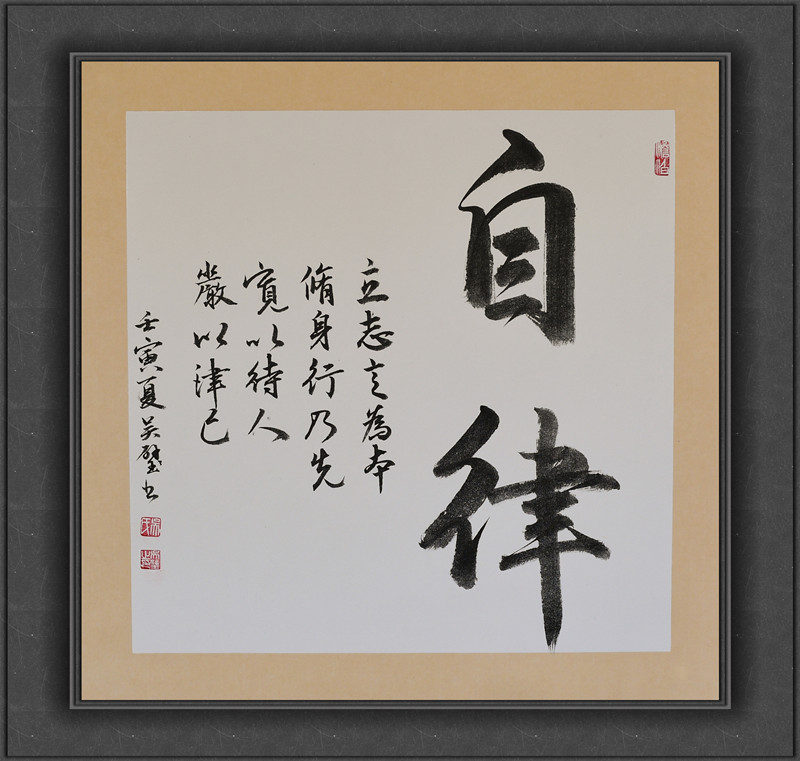 自律
立志言為本
脩身行乃先
寬以待人
嚴以律己
壬寅夏吴璧书